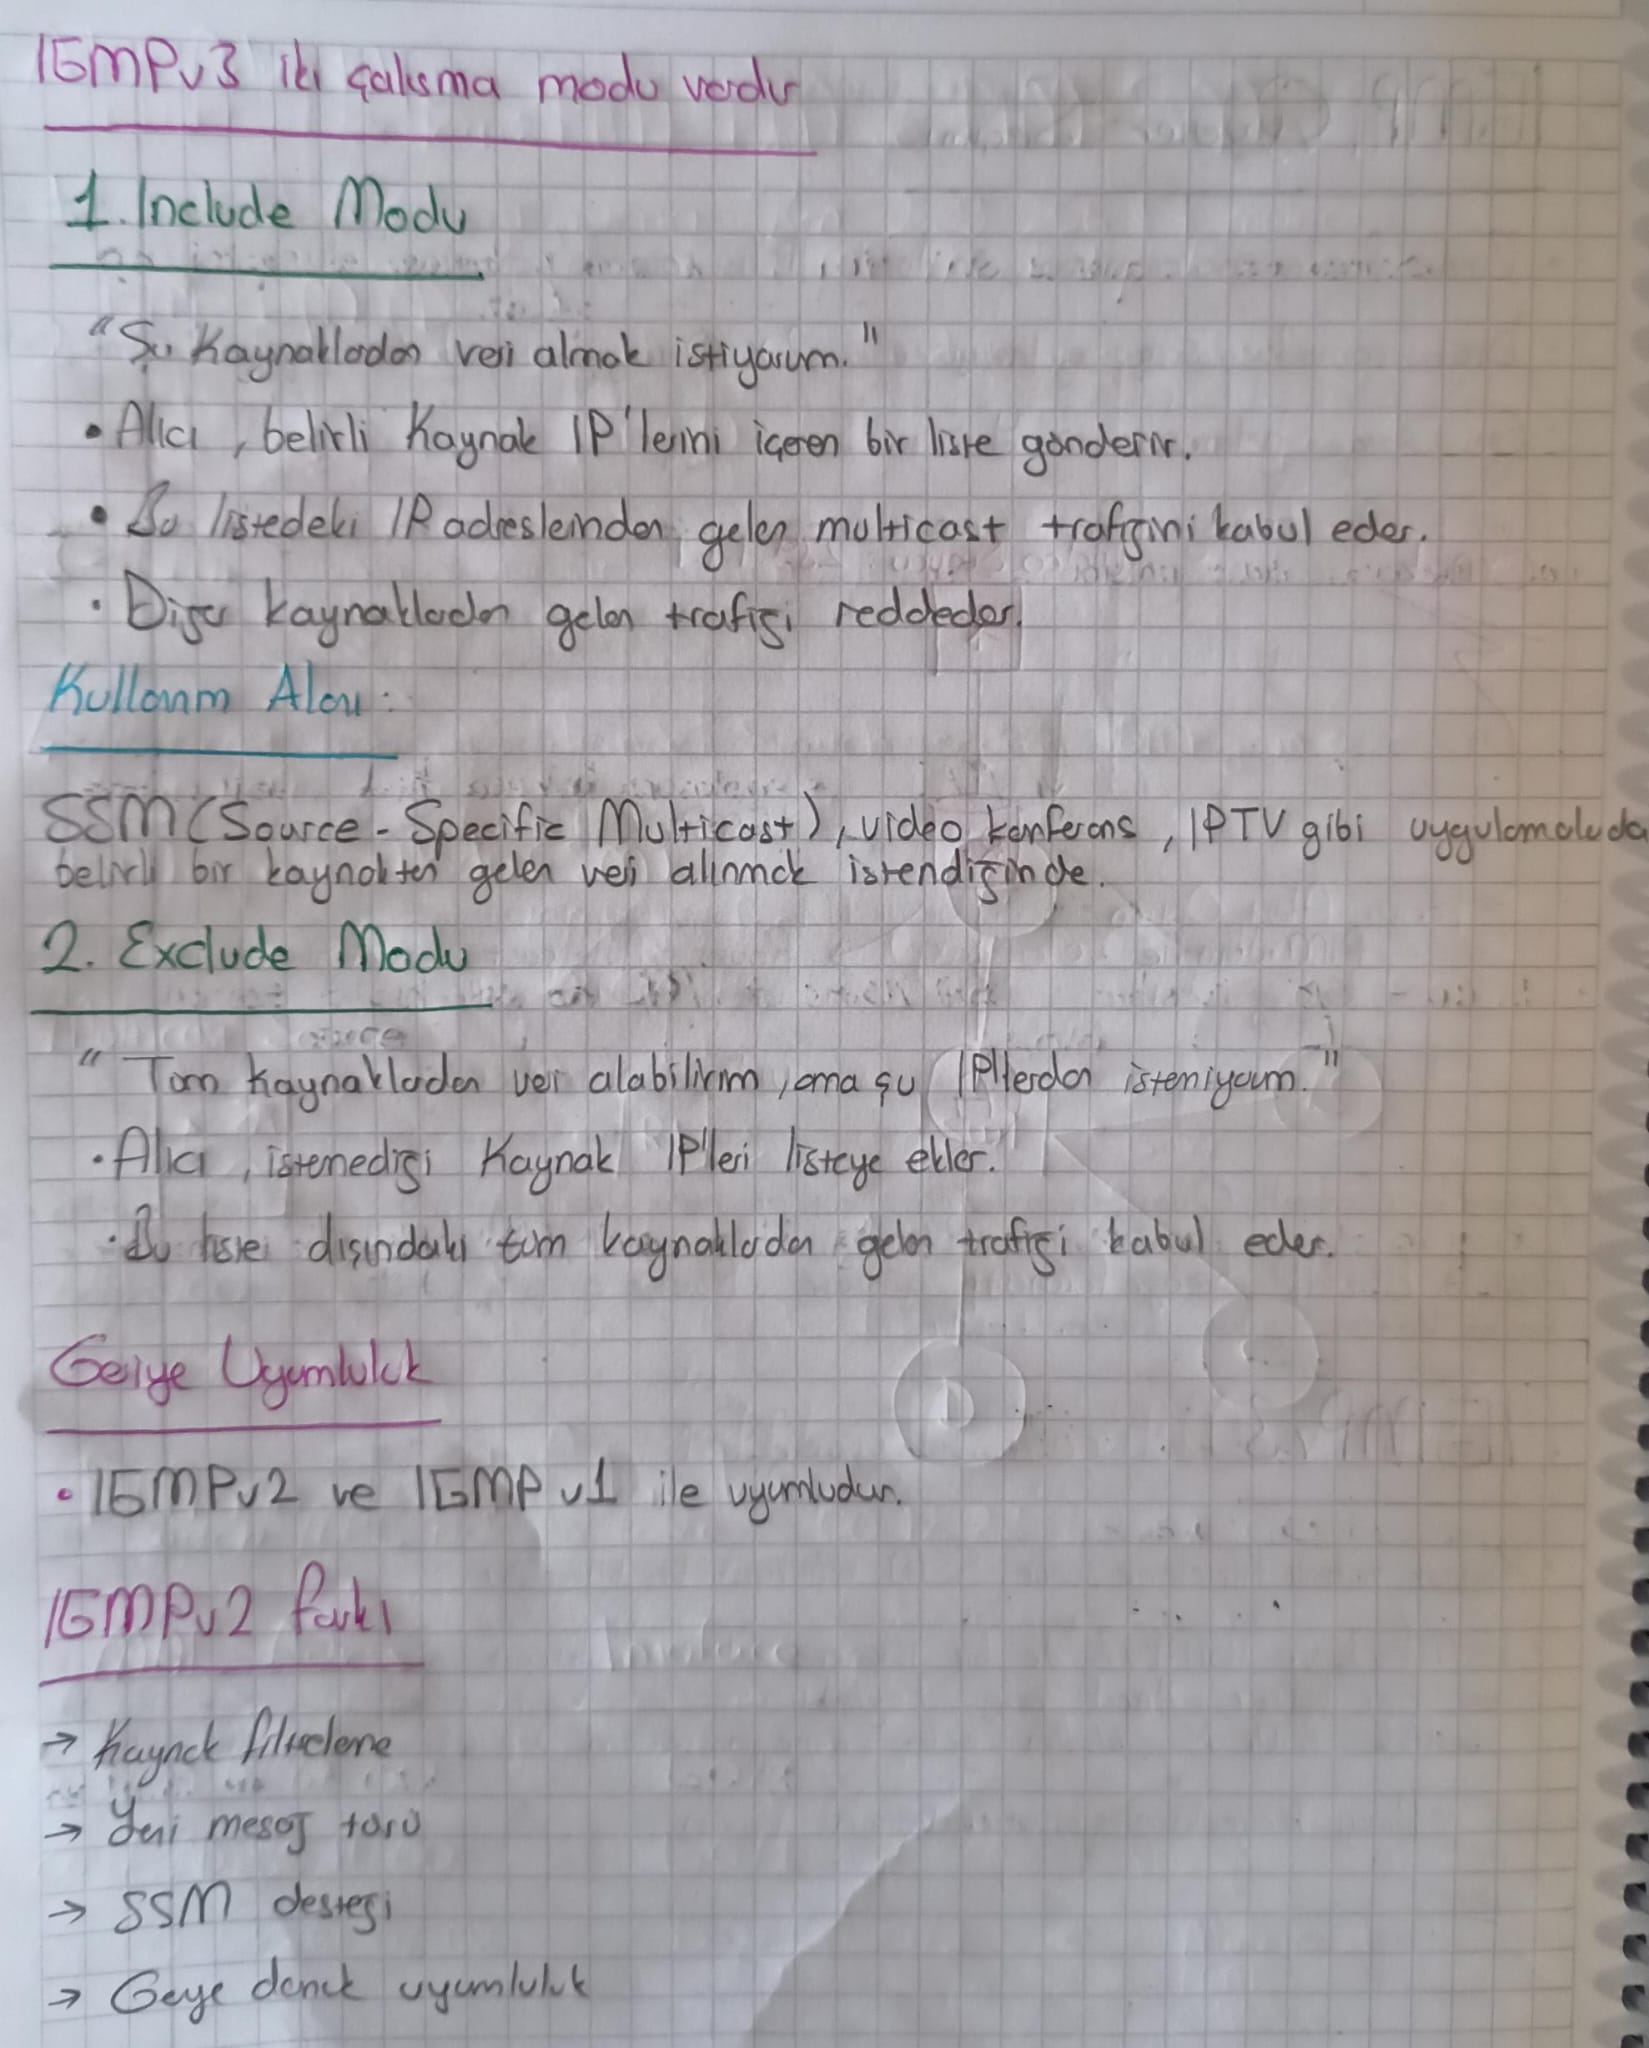 IGMPv3 iki çalışma modu vardır
1. Include Modu
"Şu Kaynaklardan veri almak istiyorum."
• Alıcı, belirli Kaynak IP'lerini içeren bir liste gönderir.
• Bu listedeki IP adreslerinden gelen multicast trafiğini kabul eder.
• Diğer kaynaklardan gelen trafiği reddeder.
Kullanım Alanı:
SSM (Source-Specific Multicast), video konferans, IPTV gibi uygulamalarda
belirli bir kaynaktan gelen veri alınmak istendiğinde.
2. Exclude Modu
"Tüm kaynaklardan veri alabilirim, ama şu IP'lerden istemiyorum."
• Alıcı, istemediği Kaynak IP'leri listeye ekler.
• Bu liste dışındaki tüm kaynaklardan gelen trafiği kabul eder.
Geriye Uyumluluk
• IGMPv2 ve IGMPv1 ile uyumludur.
IGMPv2 farkı
→ Kaynak filtreleme
→ Yeni mesaj türü
→ SSM desteği
→ Geriye dönük uyumluluk